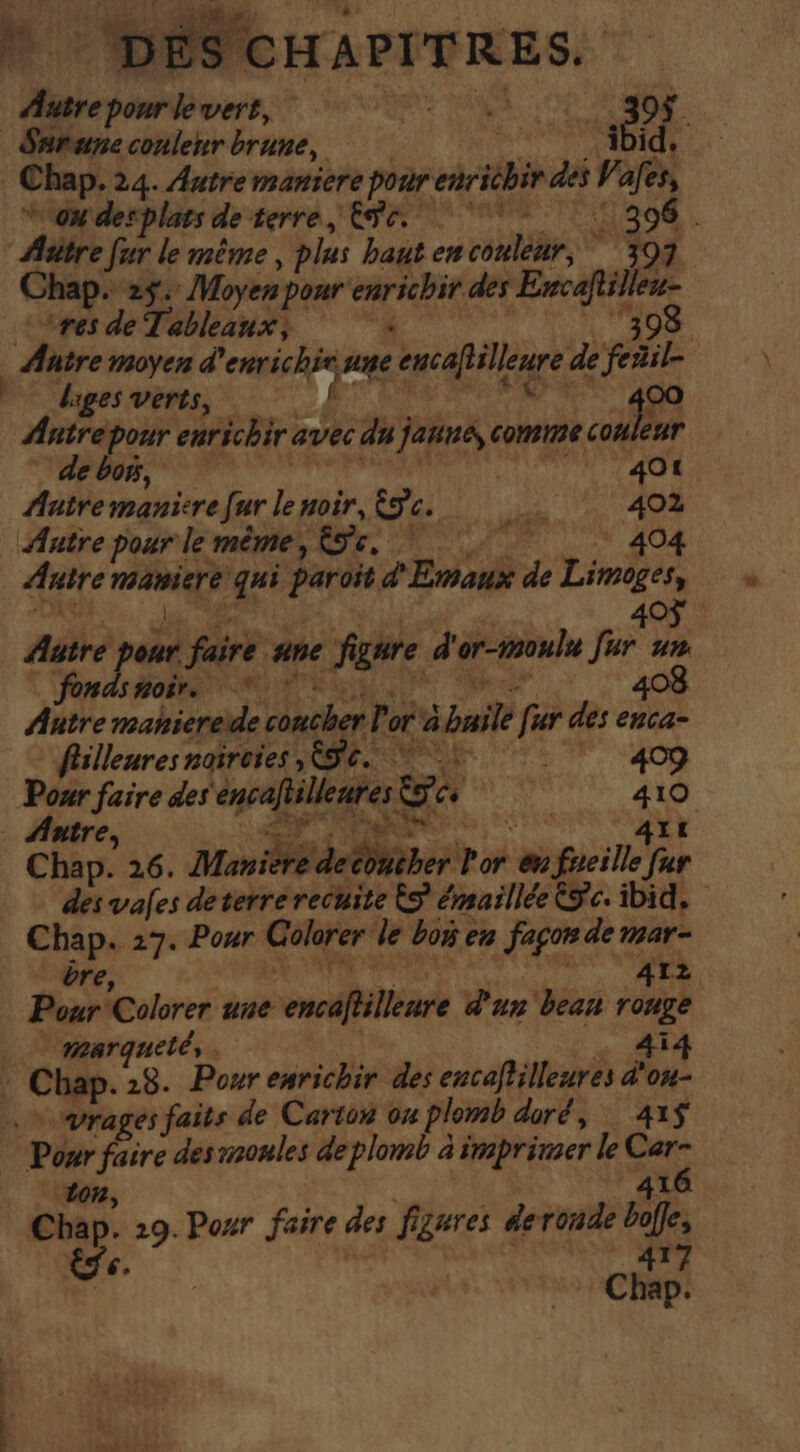 DES CHAPITRES.
Autre pour le vert, 395
Sur une couleur brune, ibid.
Chap. 24. Autre maniere pour enrichir des Vaſes,
ou des plats de terre, &c. 396
Autre ſur le même, plus haut en couleur, 397
Chap. 25. Moyen pour enrichir des Encaſtilleu-
res de Tableaux, 398
Autre moyen d'enrichir une encaſtilleure de feüil-
lages verts, 400
Autre pour enrichir avec du jaune, comme couleur
de bois, 401
Autre maniere ſur le noir, &c. 402
Autre pour le même, &c. 404
Autre maniere qui paroit d'Emaux de Limoges,
405
Autre pour faire une figure d'or-moulu ſur un
fonds noir. 408
Autre maniere de coucher l'or à huile ſur des enca-
ſtilleures noircies, &c. 409
Pour faire des encaſtilleures &c. 410
Autre, 411
Chap. 26. Maniere de coucher l'or en fueille ſur
des vaſes de terre recuite & émaillée &c. ibid.
Chap. 27. Pour Colorer le bois en façon de mar-
bre, 412
Pour Colorer une encaſtilleure d'un beau rouge
marqueté, 414
Chap. 28. Pour enrichir des encaſtilleures d'ou-
vrages faits de Carton ou plomb doré, 415
Pour faire des moules de plomb à imprimer le Car-
ton, 416
Chap. 29. Pour faire des figures de ronde boſſe,
&c. 417
Chap.